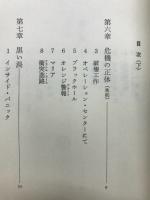 目次（下）
第六章　危機の正体（承前）
3　細増工作
4　オペレーション・センターにて
5　ブラックホール
6　オレンジ警報
7　マリア
8　衝突進路
第七章　黒い渦
1　インサイド・パニック